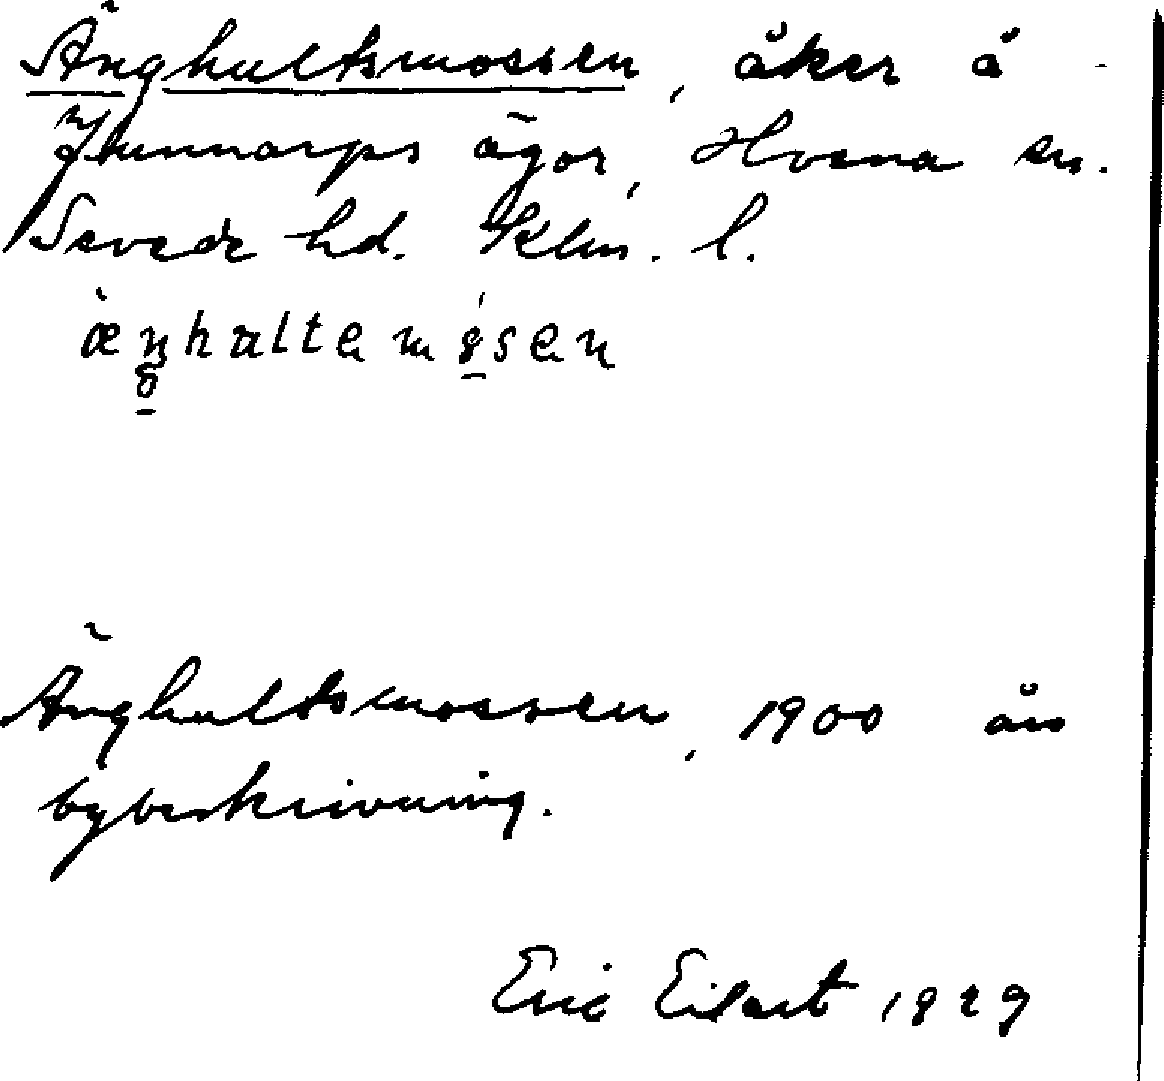 Änghultsmossen, åker å
Gunnarps ägor, Hvena sn.
Sevede hd. Klm. l.
Änghultsmossen, 1900 års
bybeskrivning.
Eric Eilert 1929